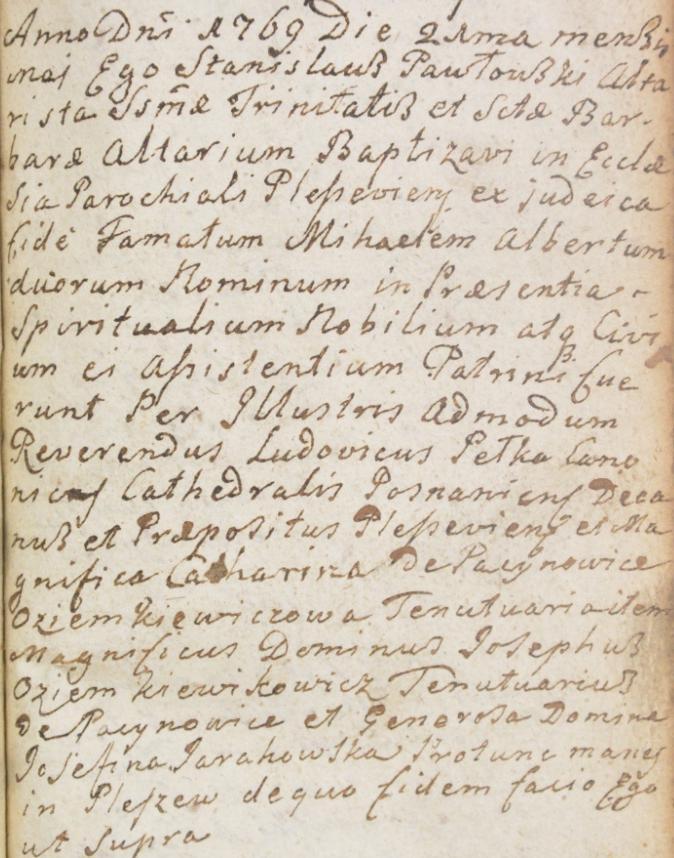 Anno Dni 1769 Die 21ma mensis
maj Ego Stanislauß Pawłouski Alta
rista Ssmæ Trinitatiß et Sctæ Bar-
baræ Altarium Baptizavi in Eccle
sia Parochiali Pleßeviens ex judeica
fide Famatum Mihaelem Albertum
duorum Nominum in Præsentia -
Spiritualium Nobilium atq Civi
um ei Aßistentium Patrini fue
runt Per Illustris Admodum
Reverendus Ludovicus Pełka Cano
nicus Cathedralis Posnaniens Deca
nuß et Præpositus Pleßeviens et Ma
gnifica Catharina de Pacynowice
Oziemkiewiczowa Tenutuaria item
Magnificus Dominus Josephuß
Oziem Tenutuariuß
de Pacynowice et Generosa Domina
Josefina Jarahowska Protunc manes
in Pleszew de quo fidem facio Ego
ut Supra